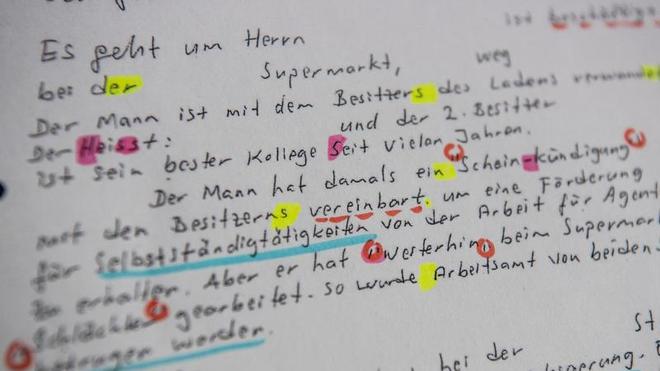 ist beschäftigt
Es geht um Herrn
bei der Supermarkt, weg
Der Mann ist mit dem Besitzers des Ladens verwandt
Der Heisst: und der 2. Besitzer
ist sein bester Kollege Seit vielen Jahren.
Der Mann hat damals ein "Schein-kündigung"
mit den Besitzerns vereinbart, um eine Förderung
für Selbstständigtätigkeiten von der Arbeit für Agent
zu erhalten. Aber er hat "westerhin" beim Supermar
gearbeitet. so wurde Arbeitsamt von beiden
betrogen worden.
bei der St